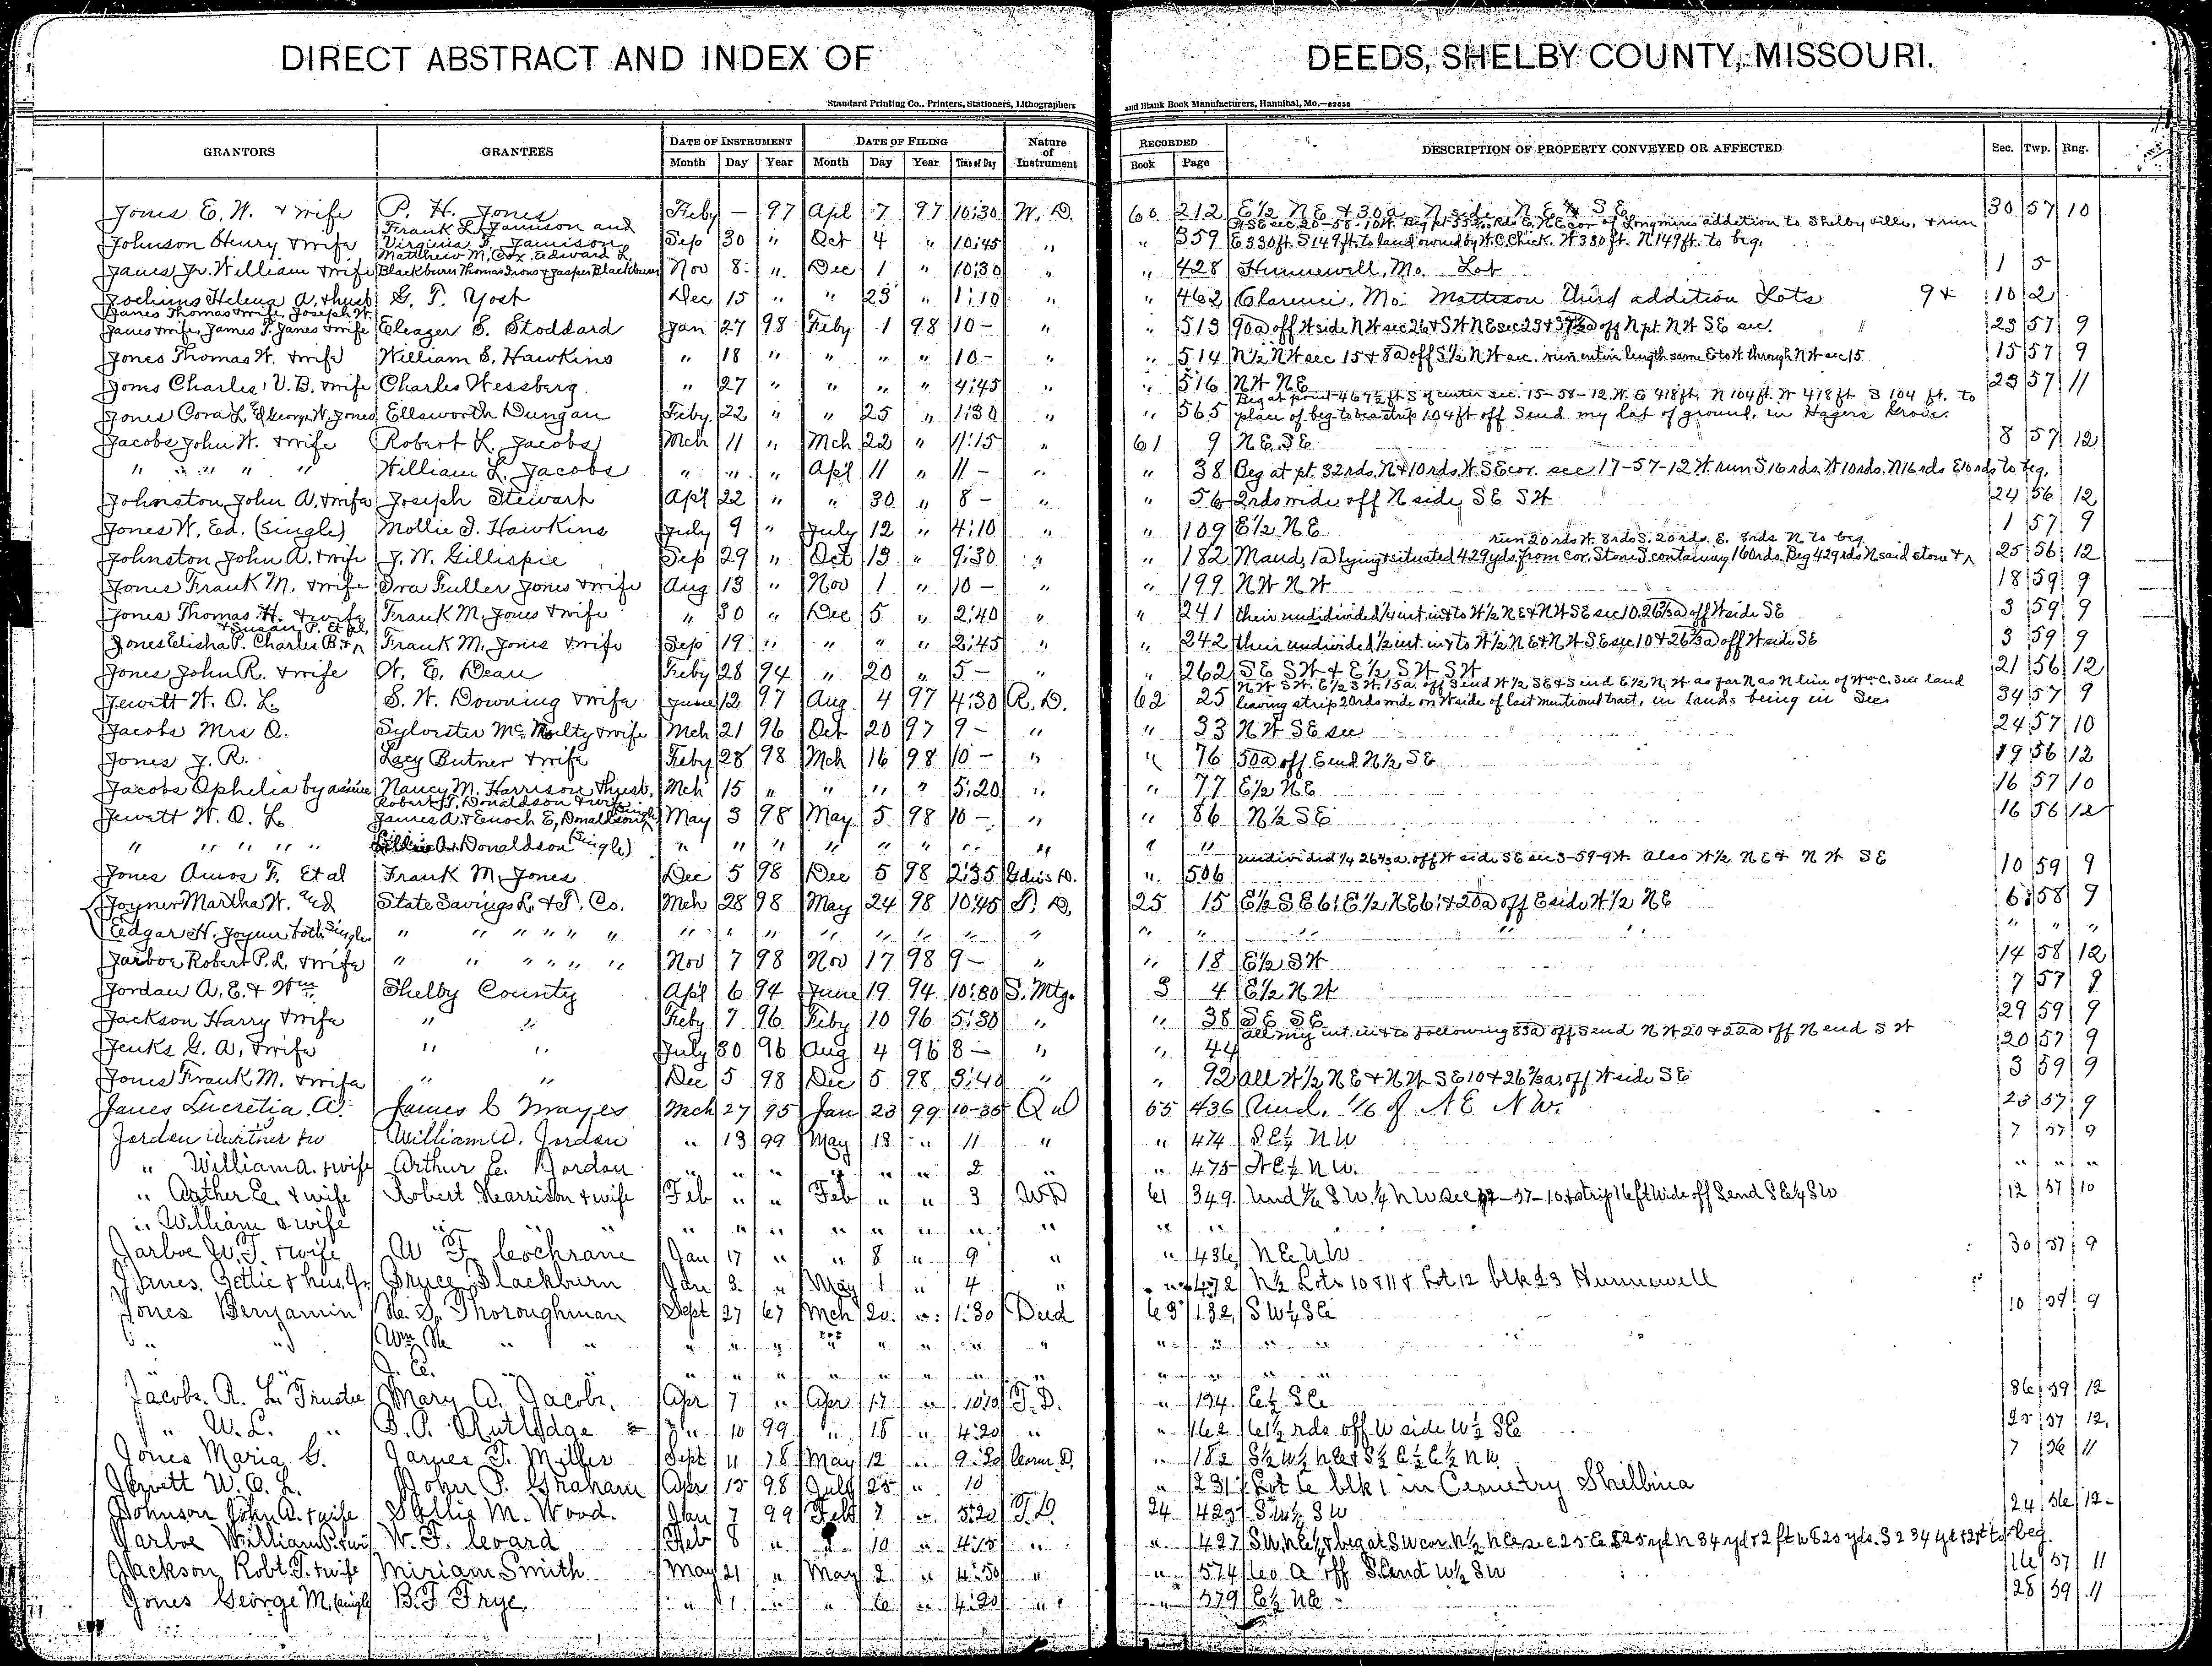 DIRECT ABSTRACT AND INDEX OF DEEDS, SHELBY COUNTY, MISSOURI.
Standard Printing Co., Printers, Stationers, Lithographers and Blank Book Manufacturers, Hannibal, Mo.—82658
GRANTORS GRANTEES DATE OF INSTRUMENT DATE OF FILING Nature of Instrument RECORDED DESCRIPTION OF PROPERTY CONVEYED OR AFFECTED Sec. Twp. Rng.
Month Day Year Month Day Year Time of Day Book Page
Jones E. W. & wife P. H. Jones Feby — 97 Apl 7 97 10:30 W. D. 60 212 E½ NE & 30a N side NE SE 30 57 10
Frank L. Jamison and
Johnson Henry & wife Virginia F. Jamison Sep 30 " Oct 4 " 10:45 " " 359 E 330 ft. S 149 ft. to land owned by W. C. Chick. W 330 ft. N 149 ft. to beg.
Matthew M. Cox, Edward L.
Janes Jr. William & wife Blackburn Thomas Irons & Jasper Blackburn Nov 8 " Dec 1 " 10:30 " " 428 Hunnewell, Mo. Lot 1 5
Jochims Helena A. & husb G. T. Yost Dec 15 " " 23 " 1:10 " " 462 Clarence, Mo. Mattison Third addition Lots 9 & 10 2
Janes Thomas & wife, Joseph W.
Janes & wife, James T. Janes & wife Eleazer S. Stoddard Jan 27 98 Feby 1 98 10 — " " 513 90a off W side NW sec 26 & SW NE sec 23 & 37½a off N pt. NW SE sec. 23 57 9
Jones Thomas W. & wife William S. Hawkins " 18 " " " " 10 — " " 514 N½ NW sec 15 & 8a off S½ NW sec. run entire length same E to W through NW sec 15 15 57 9
Joms Charles, V. B. & wife Charles Wessberg " 27 " " " " 4:45 " " 516 NW NE 23 57 11
Beg at point 467½ ft S of center sec. 15-58-12. W. E 418 ft. N 104 ft. W 418 ft S 104 ft. to
Jones Cora L. & George W. Jones Ellsworth Dungan Feby 22 " " 25 " 1:30 " " 565 place of beg to bea strip 104 ft off S end my lot of ground, in Hagers Grove.
Jacobs John W. & wife Robert L. Jacobs Mch 11 " Mch 22 " 11:15 " 61 9 NE SE 8 57 12
" " " " " William L. Jacobs " " " Apl 11 " 11 — " " 38 Beg at pt. 32 rds. N & 10 rds. W SE cor. sec 17-57-12 W. run S 16 rds. W 10 rds. N 16 rds E 10 rds to beg.
Johnston John A. & wife Joseph Stewart Apl 22 " " 30 " 8 — " " 56 2 rds wide off N side SE SW 24 56 12
Jones W. Ed. (Single) Mollie J. Hawkins July 9 " July 12 " 4:10 " " 109 E½ NE 1 57 9
run 20 rds W. 8 rds S. 20 rds. E. 8 rds N to beg
Johnston John A. & wife J. W. Gillispie Sep 29 " Oct 13 " 9:30 " " 182 Maud, 1a lying & situated 429 yds. from cor. Stone S. containing 160 rds. Beg 429 rds N said stone & 25 56 12
Jones Frank M. & wife Ora Fuller Jones & wife Aug 13 " Nov 1 " 10 — " " 199 NW NW 18 59 9
Jones Thomas H. & wife Frank M. Jones & wife " 30 " Dec 5 " 2:40 " " 241 their undivided ¼ int. in & to W½ NE & NW SE sec 10. 26⅔a off W side SE 3 59 9
& Susan, P. Et al,
Jones Elisha P. Charles B. & Frank M. Jones & wife Sep 19 " " " " 2:45 " " 242 their undivided ½ int. in & to W½ NE & NW SE sec 10 & 26⅔a off W side SE 3 59 9
Jones John R. & wife W. E. Dean Feby 28 94 " 20 " 5 — " " 262 SE SW & E½ SW SW 21 56 12
Jewett W. O. L S. W. Downing & wife June 12 97 Aug 4 97 4:30 R. D. 62 25 leaving strip 20 rds wide on W side of last mentioned tract, in lands being in Sec. 34 57 9
Jacobs Mrs O. Sylvester McNulty & wife Mch 21 96 Oct 20 97 9 — " " 33 NW SE sec 24 57 10
Jones J. R. Lacy Butner & wife Feby 28 98 Mch 16 98 10 — " " 76 50a off E end N½ SE 19 56 12
Jacobs Ophelia by Nancy M. Harrison & husb. Mch 15 " " " " 5:20 " " 77 E½ NE 16 57 10
Robert T. Donaldson & wife
Jewett W. O. L James A. & Enoch E. Donaldson May 3 98 May 5 98 10 — " " 86 N½ SE 16 56 12
" " " " " Donaldson (Single) " " " " " " " " " "
undivided ¼ 26⅔a off W side SE sec 3-59-9 W. Also W½ NE & NW SE
Jones Amos F. Et al Frank M. Jones Dec 5 98 Dec 5 98 2:35 Gdn's D. " 506 10 59 9
Joyner Martha W. and State Savings L. & T. Co. Mch 28 98 May 24 98 10:45 T. D. 25 15 E½ SE 6; E½ NE 6; & 20a off E side W½ NE 6 58 9
Edgar H. Joyner both single. " " " " " " " " " " " " " " " " " " "
Jarboe Robert P. L. & wife " " " " " " Nov 7 98 Nov 17 98 9 — " " 18 E½ SW 14 58 12
Jordan A. E. & Wm. Shelby County Apl 6 94 June 19 94 10:30 S. Mtg. 3 4 E½ NW 7 57 9
Jackson Harry & wife " " Feby 7 96 Feby 10 96 5:30 " " 38 SE SE 29 59 9
all my int. in & to following 85a off S end NW 20 & 22a off N end SW
Jenks G. A. & wife " " July 30 96 Aug 4 96 8 — " " 44 20 57 9
Jones Frank M. & wife " " Dec 5 98 Dec 5 98 3:40 " " 92 all W½ NE & NW SE 10 & 26⅔a off W side SE 3 59 9
Janes Lucretia A. James C Mayes Mch 27 95 Jan 23 99 10-35 Q D 55 436 Und. 1/6 of NE NW. 23 57 9
Jordan William A. Jordan " 13 99 May 18 " 11 " " 474 SE¼ NW 7 57 9
" William A. & wife Arthur E. Jordan " " " " " " 2 " " 475 NE¼ NW. " " "
" Arther E. & wife Robert Harrison & wife Feb " " Feb " " 3 WD 61 349 12 57 10
" William & wife " " " " " " " " " " " "
Jarboe W. T. & wife W F Cochrane Jan 17 " " 8 " 9 " " 436 NE NW 30 57 9
Janes, Gettie & hus. Bruce Blackburn Jan 3 " May 1 " 4 " " 472 N½ Lots 10 & 11 & Lot 12 blk 23 Hunnewell
Jones Benjamin Thoroughman Sept 27 67 Mch 20 " 1:30 Deed 63 132 SW¼ SE 10 59 9
" " Wm " " " " " " " " " " " "
" " J. E. " " " " " " " " " " "
Jacobs R. L. Trustee Mary A. Jacobs. Apr 7 " Apr 17 " 1010 T. D. " 134 E½ SE 36 59 12
" W. L. " B. P. Rutledge " 10 99 " 18 " 4:20 " " 162 61½ rds off W side W½ SE 25 57 12
Jones Maria G. James F. Miller Sept 11 78 May 12 " Corm. D. " 182 S½ W½ NE & S½ E½ E½ NW 7 56 11
Jewett W. O. L. John P. Graham Apr 15 98 July 25 " 10 " 231 Lot 6 blk 1 in Cemetry Shelbina
Johnson John A. & wife Sallie M. Wood. Jan 7 99 Feb 7 " 5:20 T. D. 24 423 SW½ SW 24 56 12
Jarboe William P. & wi W. F. Feb 8 " " 10 " 4:15 " " 427
Jackson Robt. T. & wife Miriam Smith May 21 " May 2 " 4:50 " " 574 60 A off S end W½ SW 16 57 11
Jones George M. (single B. F. Frye " 1 " " 6 " 4:20 " " 579 E½ NE 28 59 11